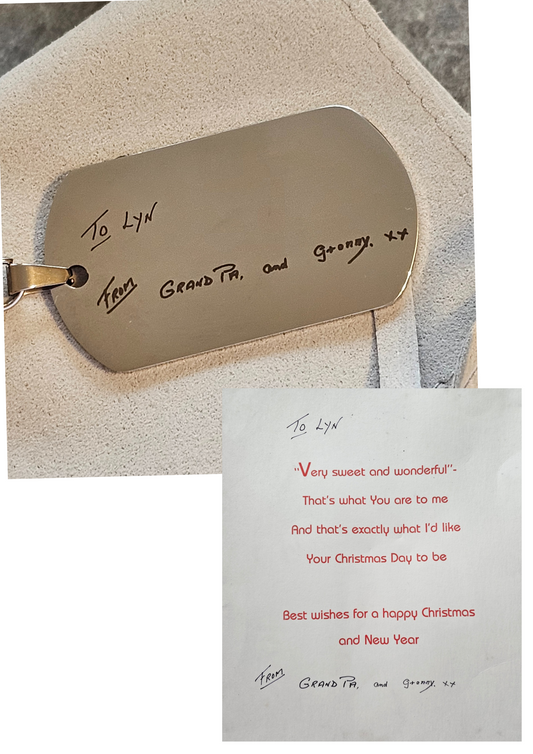 To LYN
FROM GRANDPA. and Granny. xx
To LYN
"Very sweet and wonderful"-
That's what You are to me
And that's exactly what I'd like
Your Christmas Day to be
Best wishes for a happy Christmas
and New Year
FROM GRANDPA. and Granny. xx